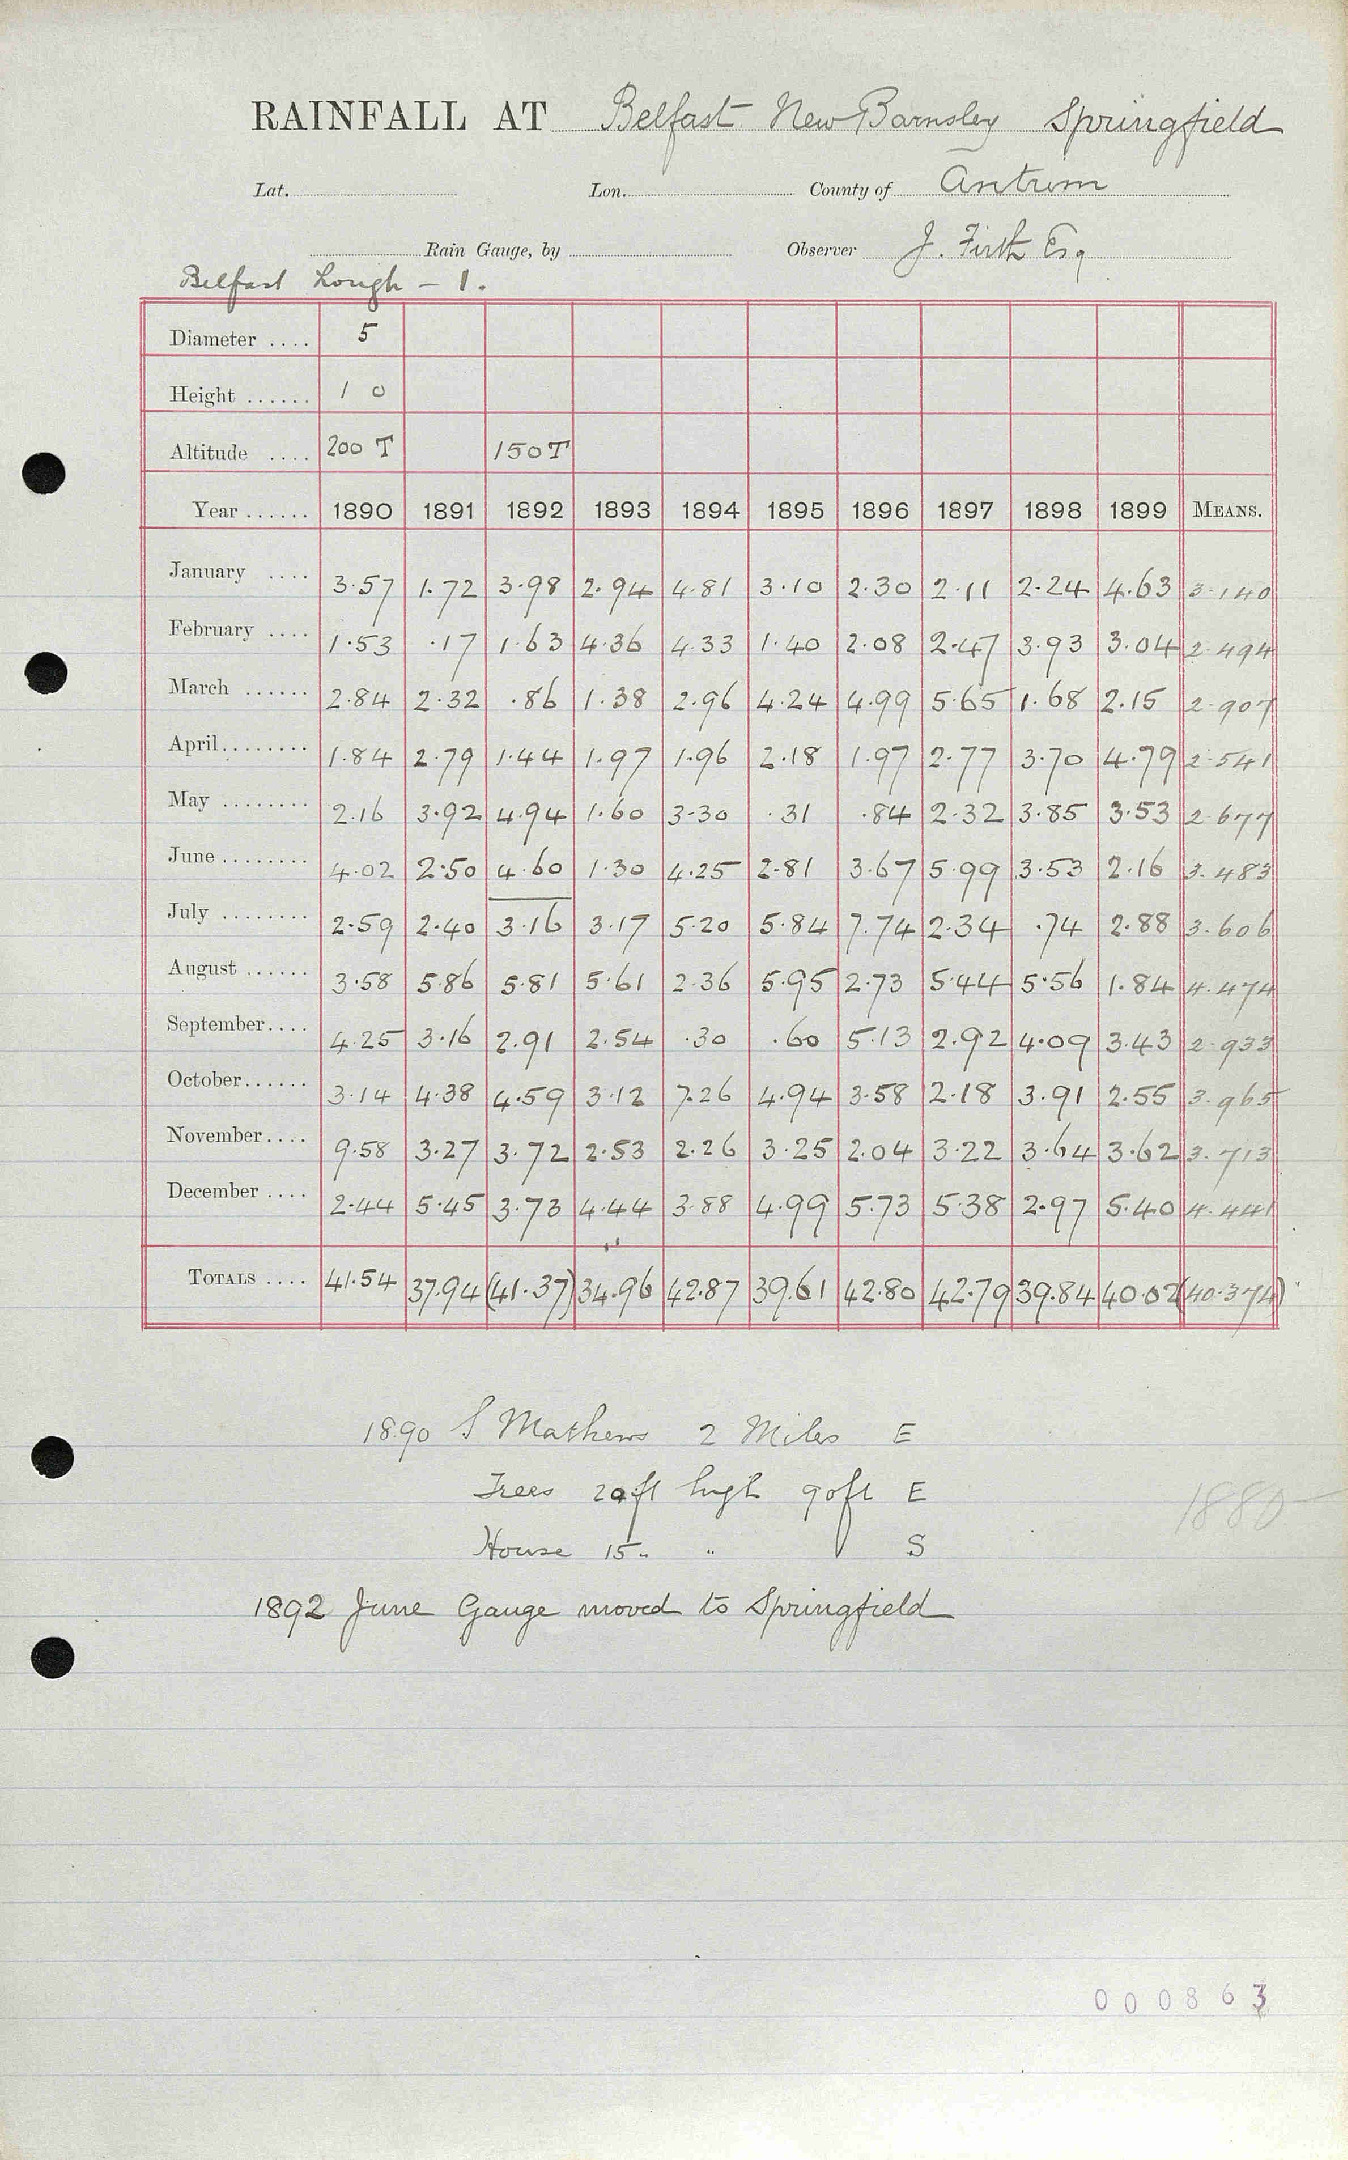 RAINFALL AT Belfast New Barnsley Springfield
Lat. Lon. County of Antrim
Rain Gauge, by Observer J. Firth Esq
Belfast Lough - 1.
Diameter .... 5
Height ...... 1 0
Altitude .... 200 T 150 T
Year ...... 1890 1891 1892 1893 1894 1895 1896 1897 1898 1899 MEANS.
January .... 3.57 1.72 3.98 2.94 4.81 3.10 2.30 2.11 2.24 4.63 3.140
February .... 1.53 .17 1.63 4.36 4.33 1.40 2.08 2.47 3.93 3.04 2.494
March ...... 2.84 2.32 .86 1.38 2.96 4.24 4.99 5.65 1.68 2.15 2.907
April........ 1.84 2.79 1.44 1.97 1.96 2.18 1.97 2.77 3.70 4.79 2.541
May ........ 2.16 3.92 4.94 1.60 3.30 .31 .84 2.32 3.85 3.53 2.677
June ........ 4.02 2.50 4.60 1.30 4.25 2.81 3.67 5.99 3.53 2.16 3.483
July ........ 2.59 2.40 3.16 3.17 5.20 5.84 7.74 2.34 .74 2.88 3.606
August ...... 3.58 5.86 5.81 5.61 2.36 5.95 2.73 5.44 5.56 1.84 4.474
September.... 4.25 3.16 2.91 2.54 .30 .60 5.13 2.92 4.09 3.43 2.933
October...... 3.14 4.38 4.59 3.12 7.26 4.94 3.58 2.18 3.91 2.55 3.965
November.... 9.58 3.27 3.72 2.53 2.26 3.25 2.04 3.22 3.64 3.62 3.713
December .... 2.44 5.45 3.73 4.44 3.88 4.99 5.73 5.38 2.97 5.40 4.441
TOTALS .... 41.54 37.94 (41.37) 34.96 42.87 39.61 42.80 42.79 39.84 40.02 (40.374)
1890 S Mathews 2 Miles E
Trees 20ft high 90ft E
House 15 " " S
1880-
1892 June Gauge moved to Springfield
000863